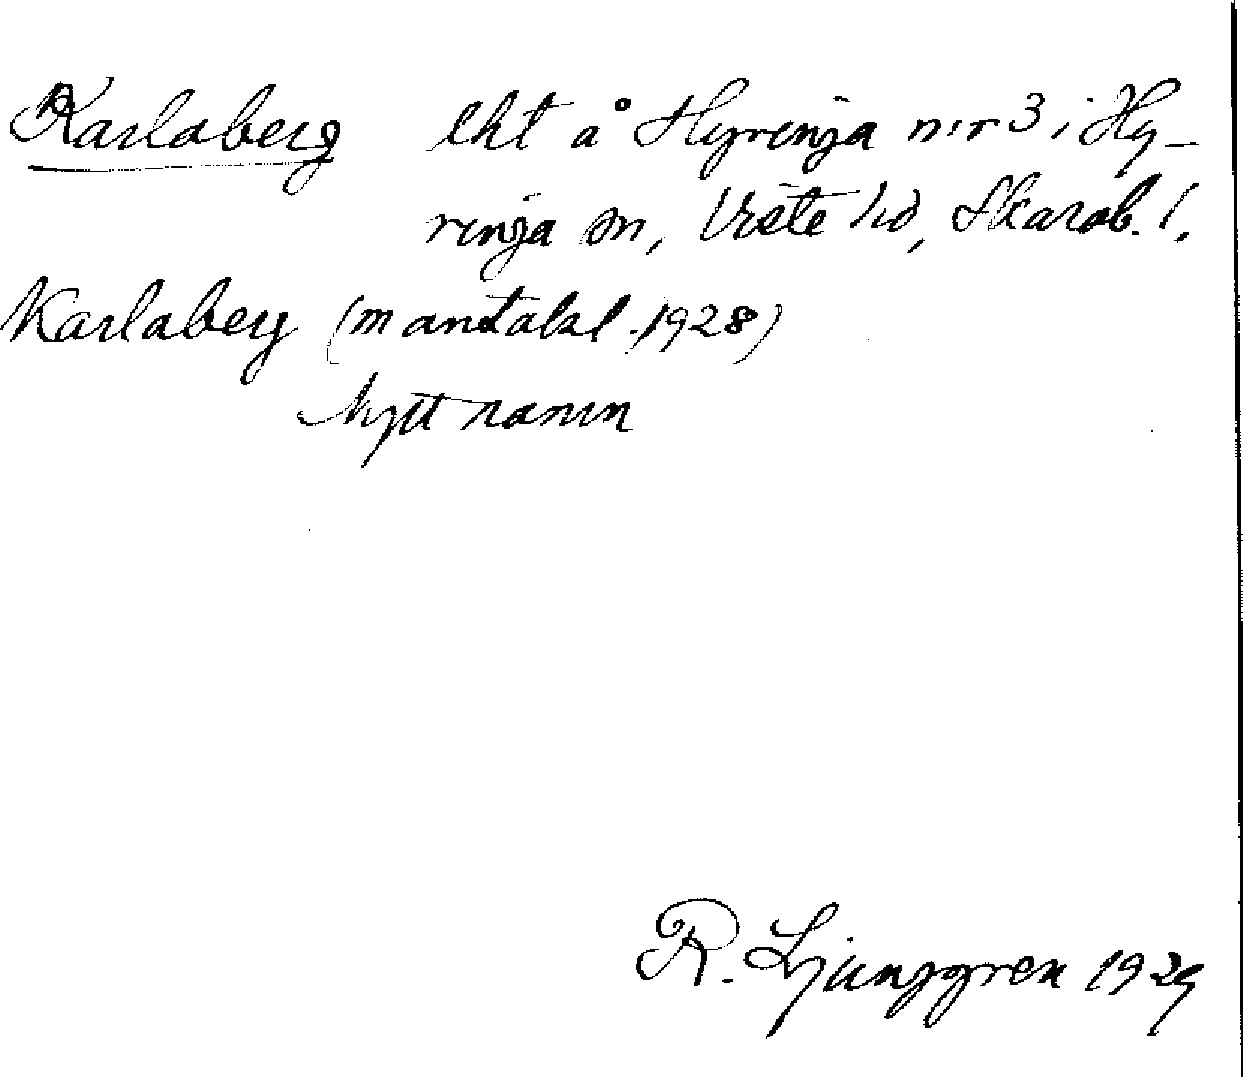 Karlaberg lht å Hyrenja n:r 3 i Hy-
renja sn, Viste hd, Skarab. l.
Karlaberg (mantalsl. 1928)
Nytt namn
R. Ljunggren 1929